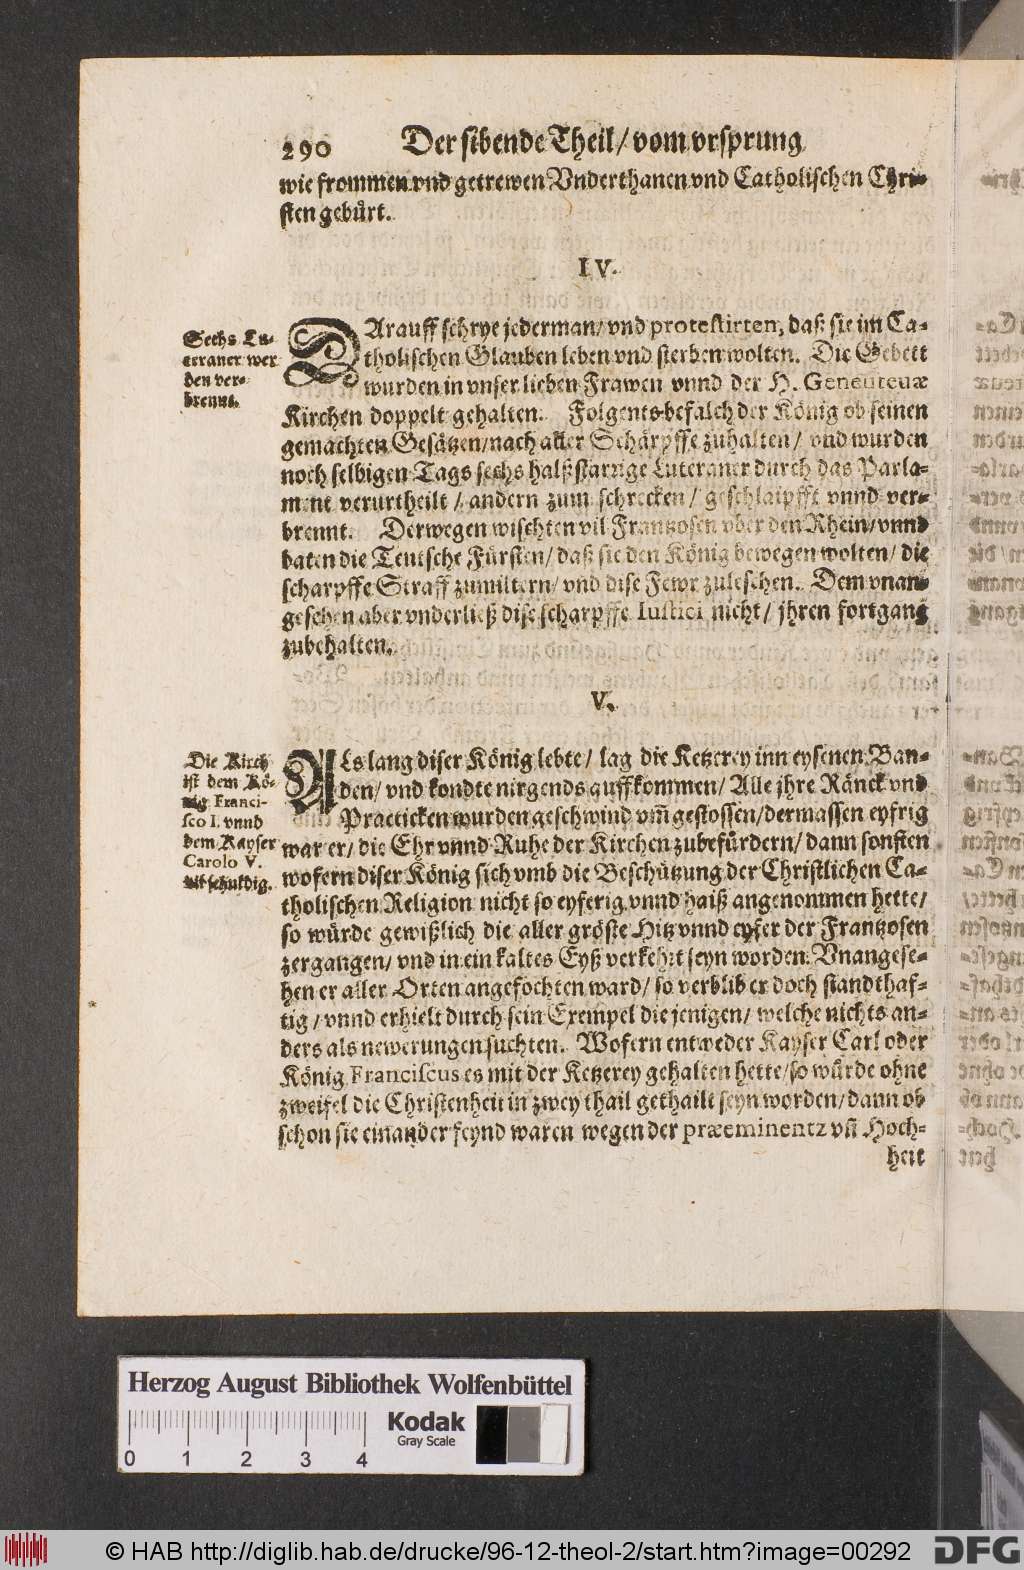 290 Der sibende Theil/ vom vrsprung
wie frommen vnd getrewen Vnderthanen vnd Catholischen Chri-
sten gebürt.
IV.
Sechs Lu-
teraner wer
den ver-
brennt.
DArauff schrye jederman/ vnd protestirten, daß sie im Ca-
tholischen Glauben leben vnd sterben wolten. Die Gebett
wurden in vnser lieben Frawen vnnd der H. Geneuteuæ
Kirchen doppelt gehalten. Folgents befalch der König ob seinen
gemachten Gesätzen/ nach aller Schärpffe zuhalten/ vnd wurden
noch selbigen Tags sechs halßstarrige Luteraner durch das Parla-
ment verurtheilt/ andern zum schrecken/ geschlaipfft vnnd ver-
brennt. Derwegen wischten vil Frantzosen vber den Rhein/ vnnd
baten die Teutsche Fürsten/ daß sie den König bewegen wolten/ die
scharpffe Straff zumiltern/ vnd dise Fewr zuleschen. Dem vnan-
gesehen aber vnderließ dise scharpffe Iustici nicht/ jhren fortgang
zubehalten.
V.
Die Kirch
ist dem Kö-
nig Franci-
sco I. vnnd
dem Kayser
Carolo V.
vil schuldig.
ALs lang diser König lebte/ lag die Ketzerey inn eysenen Ban-
den/ vnd kondte nirgends auffkommen/ Alle jhre Ränck vnd
Practicken wurden geschwind vm̃gestossen/ dermassen eyfrig
war er/ die Ehr vnnd Ruhe der Kirchen zubefürdern/ dann sonsten
wofern diser König sich vmb die Beschützung der Christlichen Ca-
tholischen Religion nicht so eyferig vnnd haiß angenommen hette/
so würde gewißlich die aller gröste Hitz vnnd eyfer der Frantzosen
zergangen/ vnd in ein kaltes Eyß verkehrt seyn worden. Vnangese-
hen er aller Orten angefochten ward/ so verblib er doch standthaf-
tig/ vnnd erhielt durch sein Exempel die jenigen/ welche nichts an-
ders als newerungen suchten. Wofern entweder Kayser Carl oder
König Franciscus es mit der Ketzerey gehalten hette/ so würde ohne
zweifel die Christenheit in zwey thail gethailt seyn worden/ dann ob
schon sie einander feynd waren wegen der præeminentz vñ Hoch-
heit
Herzog August Bibliothek Wolfenbüttel
0 1 2 3 4
Kodak
Gray Scale
© HAB http://diglib.hab.de/drucke/96-12-theol-2/start.htm?image=00292
DFG